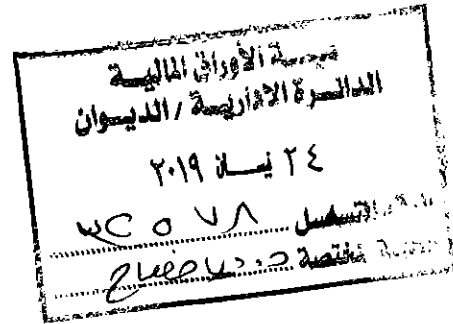 هيئة الأوراق المالية
الدائرة الادارية / الديوان
٢٤ نيسان ٢٠١٩
المتسلسل ٣٢٥٧٨
الجهة المختصة